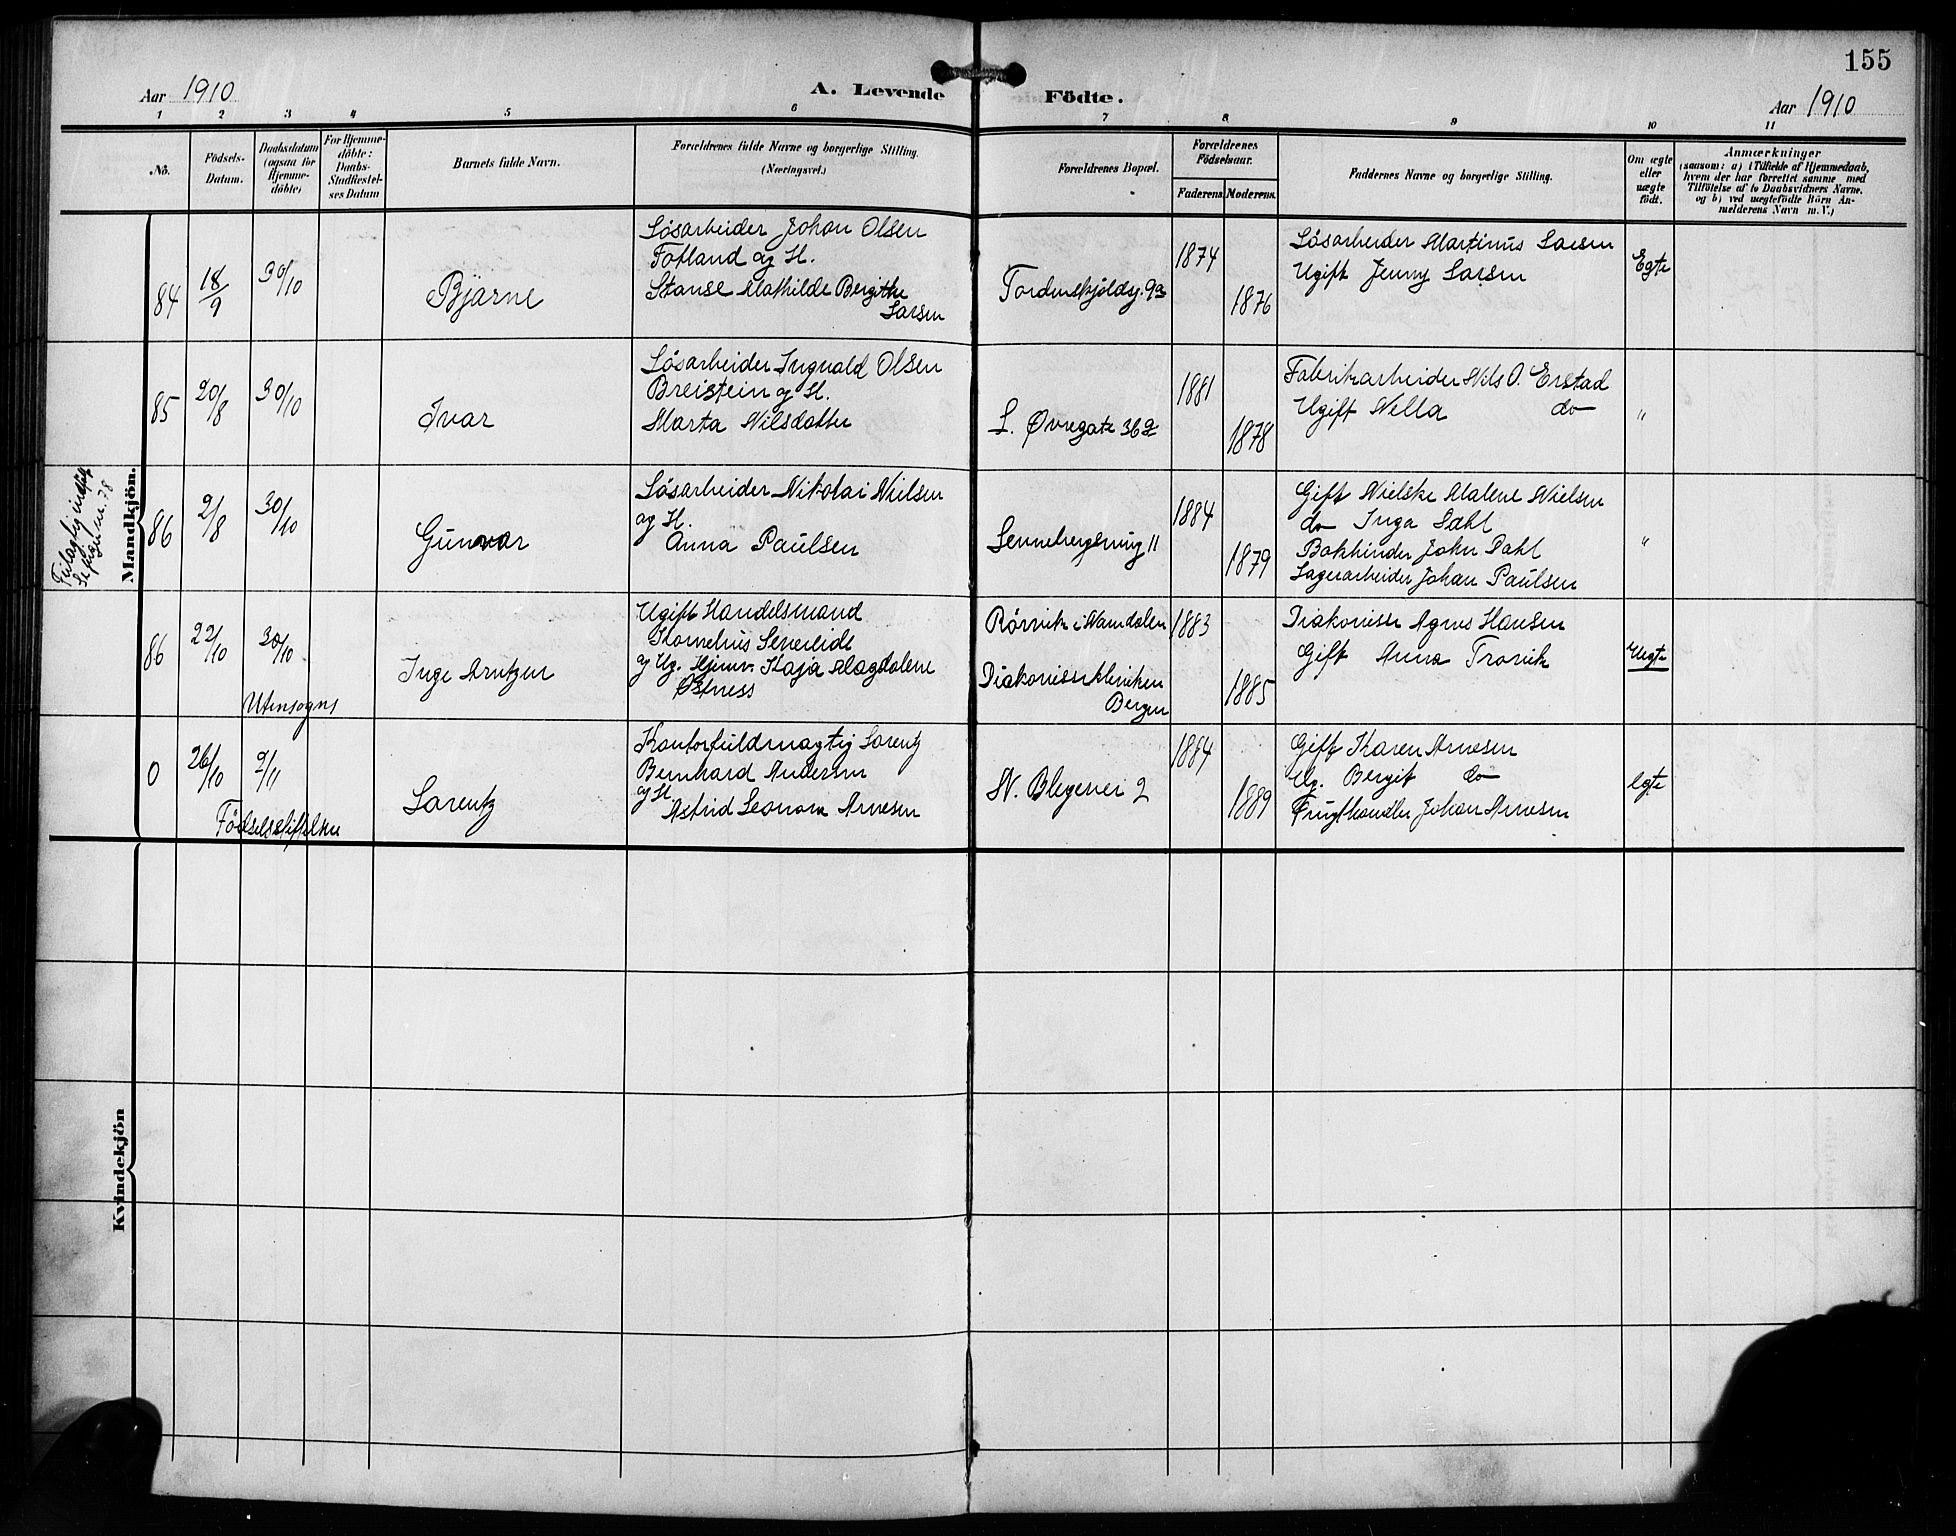 155
Aar 1910
A. Levende
Födte.
Aar 1910
1 2 3 4 5 6 7 8 9 10 11
No.
Födsels-
Datum.
Daabsdatum
(ogsaa for
Hjemme-
döbte)
For Hjemme-
döbte:
Daabs-
Stadfæstel-
ses Datum
Barnets fulde Navn.
Forældrenes fulde Navne og borgerlige Stilling.
(Næringsvei.)
Forældrenes Bopæl.
Forældrenes
Födselsaar.
Faderens
Moderens
Faddernes Navne og borgerlige Stilling.
Om ægte
eller
uægte
födt.
Anmærkninger
(saasom: a) i Tilfælde af Hjemmedaab,
hvem der har forrettet samme med
Tilföielse af to Daabsvidners Navne.
og b) ved uægtefödte Börn An-
melderens Navn m. V.)
Mandkjön.
84
18/9
30/10
Bjarne
Løsarbeider Johan Olsen
Fotland og H.
Stanse Mathilde Bergithe
Larsen
Tordenskjoldsg. 9a
1874
1876
Løsarbeider Martinus Larsen
Ugift Jenny Larsen
Egte
85
20/8
30/10
Ivar
Løsarbeider Ingvald Olsen
Breistein og H.
Marta Nilsdatter
L. Øvregate 36
1881
1878
Fabrikarbeider Nils O. Erstad
Ugift Nella do
"
86
2/8
30/10
Gunvar
Løsarbeider Nikolai Nielsen
og H.
Anna Paulsen
11
1884
1879
Gift Nielske Malene Nielsen
do Inga Dahl
Bokbinder John Dahl
Lagerarbeider Johan Paulsen
"
86
22/10
30/10
Utensogns
Inge Arntzen
Ugift Handelsmand
Kornelius Severeide
og Ug. Hjemv. Kaja Magdalene
Østness
Rørvik i Namdalen
Diakonisseklinikken
Bergen
1883
1885
Diakonisse Agnes Hansen
Gift Anna Trovik
Uegte
0
26/10
2/11
Fødselsstiftelsen
Lorentz
Kontorfuldmægtig Lorentz
Bernhard Andersen
og H.
Astrid Leonora Arnesen
N. Blegevei 2
1884
1889
Gift Karen Arnesen
Ug. Bergit do
Frugthandler Johan Arnesen
egte
Kvindekjön